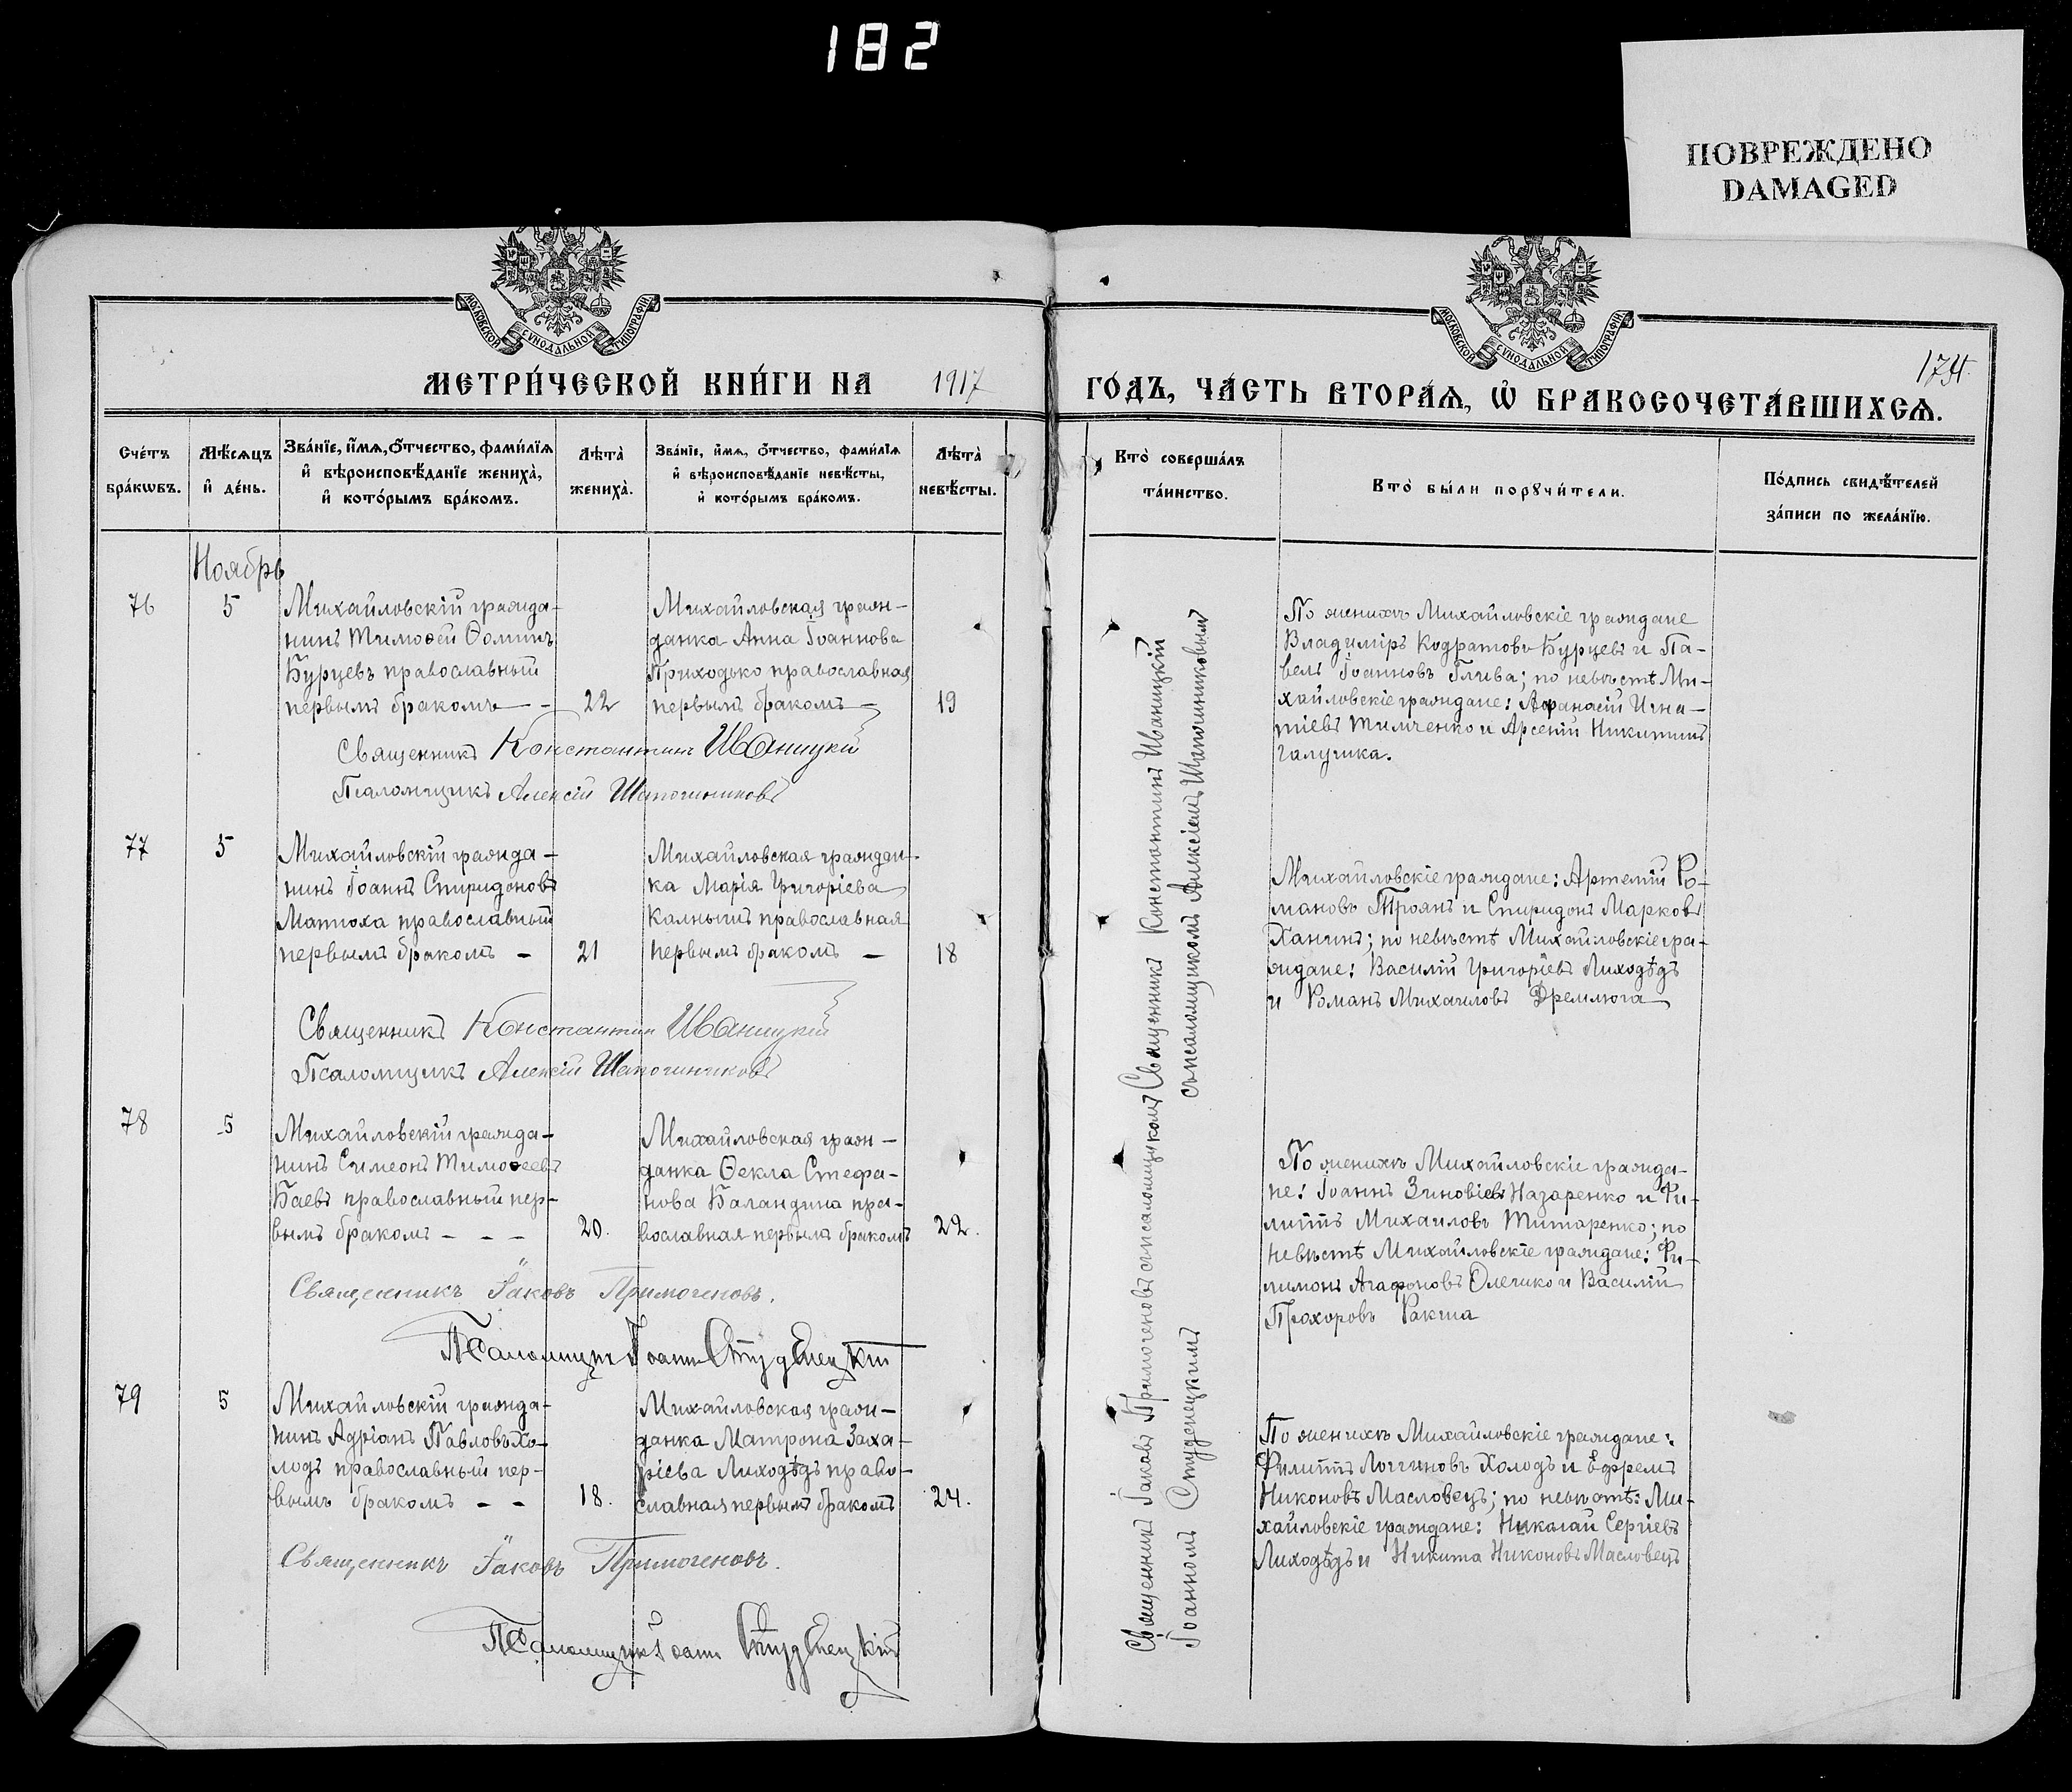 182
ПОВРЕЖДЕНО
DAMAGED
МОСКОВСКОЙ СУНОДАЛЬНОЙ ТИПОГРАФІИ
МОСКОВСКОЙ СУНОДАЛЬНОЙ ТИПОГРАФІИ
174.
МЕТРИ́ЧЕСКОЙ КНИ́ГИ НА 1917 ГО́ДЪ, ЧА́СТЬ ВТОРА́Ѧ, Ѽ БРАКОСОЧЕТА́ВШИХСѦ.
Сче́тъ
бра́кωвъ.
Мѣ́сѧцъ
и҆ де́нь.
Зва́нїе, и҆́мѧ, ѻ҆́тчество, фами́лїѧ
и҆ вѣроисповѣ́данїе жениха̀,
и҆ кото́рымъ бра́комъ.
Лѣта̀
жениха̀.
Зва́нїе, и҆́мѧ, ѻ҆́тчество, фами́лїѧ
и҆ вѣроисповѣ́данїе невѣ́сты,
и҆ кото́рымъ бра́комъ.
Лѣта̀
невѣ́сты.
Кто̀ соверша́лъ
та́инство.
Кто̀ бы́ли порꙋчи́тели.
По́дпись свидѣ́телей
за́писи по жела́нїю.
Ноябрь
76
5
Михайловскій гражда-
нинъ Тимоѳей Ѳоминъ
Бурцевъ православный
первымъ бракомъ -
22
Михайловская граж-
данка Анна Іоаннова
Приходько православная
первымъ бракомъ -
19
По женихѣ Михайловскіе граждане
Владиміръ Кодратовъ Бурцевъ и Па-
велъ Іоанновъ Глива; по невѣстѣ Ми-
хайловскіе граждане: Афанасій Игна-
тіевъ Тимченко и Арсеній Никитинъ
Галушка.
Священникъ Константинъ Иваницкій
Псаломщикъ Алексій Шапошниковъ
77
5
Михайловскій гражда-
нинъ Іоаннъ Спиридоновъ
Матюха православный
первымъ бракомъ -
21
Михайловская граждан-
ка Марія Григоріева
Калнышъ православная
первымъ бракомъ -
18
Михайловскіе граждане: Артемій Ро-
мановъ Троянъ и Спиридонъ Марковъ
Ханинъ; по невѣстѣ Михайловскіе гра-
ждане: Василій Григоріевъ Лиходѣдъ
и Романъ Михаиловъ Дремлюга
Священникъ Константинъ Иваницкій
Псаломщикъ Алексій Шапошниковъ
Священникъ Константинъ Иваницкій
съ псаломщикомъ Алексіемъ Шапошниковымъ
78
5
Михайловскій гражда-
нинъ Симеонъ Тимоѳеевъ
Баевъ православный пер-
вымъ бракомъ - - -
20.
Михайловская граж-
данка Ѳекла Стефа-
нова Баландина пра-
вославная первымъ бракомъ
22.
По женихѣ Михайловскіе гражда-
не: Іоаннъ Зиновіевъ Назаренко и Фи-
липпъ Михаиловъ Титаренко; по
невѣстѣ Михайловскіе граждане: Фи-
лимонъ Агафоновъ Олешко и Василій
Прохоровъ Ракша
Священникъ Іаковъ Примогеновъ.
Псаломщикъ Іоаннъ Студенецкій
79
5
Михайловскій гражда-
нинъ Адріанъ Павловъ Хо-
лодъ православный пер-
вымъ бракомъ - -
18.
Михайловская граж-
данка Матрона Заха-
ріева Лиходѣдъ право-
славная первымъ бракомъ
24.
По женихѣ Михайловскіе граждане:
Филиппъ Логгиновъ Холодъ и Ефремъ
Никоновъ Масловецъ; по невѣстѣ: Ми-
хайловскіе граждане: Николай Сергіевъ
Лиходѣдъ и Никита Никоновъ Масловецъ
Священникъ Іаковъ Примогеновъ.
Псаломщикъ Іоаннъ Студенецкій
Священникъ Іаковъ Примогеновъ съ псаломщикомъ
Іоанномъ Студенецкимъ